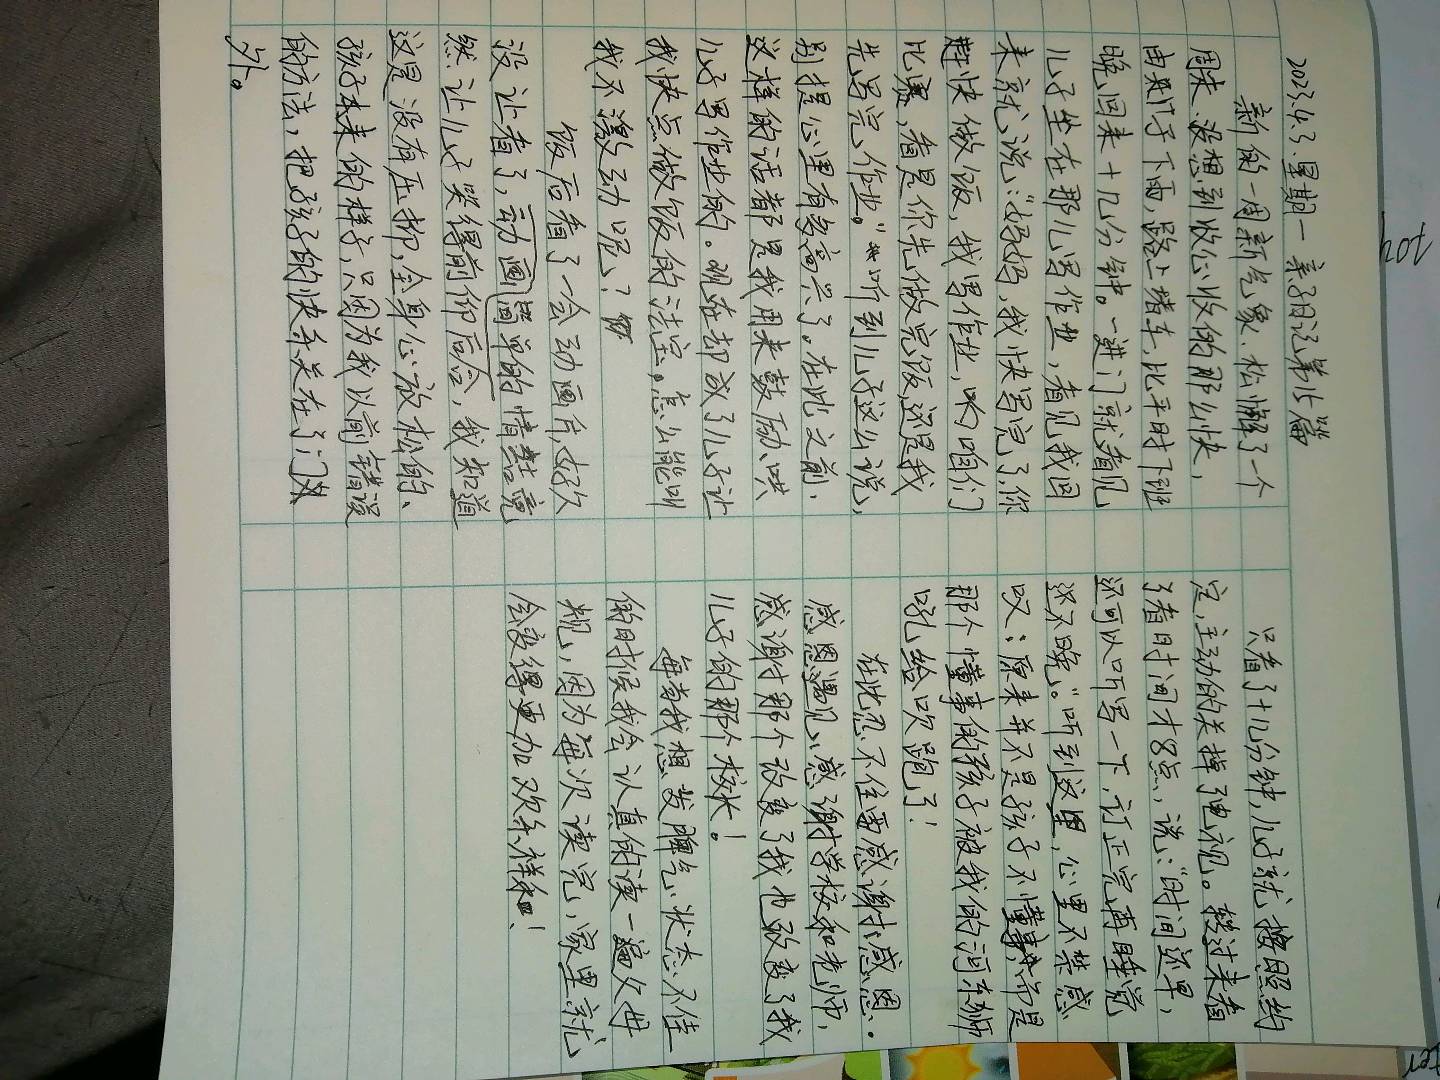 2023.4.3 星期一 亲子日记第15篇
新的一周新气象、松懈了一个
周末、没想到收心收的那么快，
由于下雨，路上堵车，比平时下班
晚回来十几分钟。一进门就看见
儿子坐在那儿写作业，看见我回
来就说：“妈妈，我快写完了，你
赶快做饭，我写作业，咱们
比赛，看是你先做完饭，还是我
先写完作业。”听到儿子这么说，
别提心里有多高兴了。在此之前、
这样的话都是我用来鼓励、哄
儿子写作业的。现在却成了儿子让
我快点做饭的法宝。怎么能叫
我不激动呢？
饭后看了一会动画片，好久
没让看了，动画里的情节竟
然让儿子笑得前仰后合，我知道
这是没有压抑，全身心放松的、
孩子本来的样子，只因为我以前错误
的方法，把孩子的快乐关在了门
外。
只看了十几分钟，儿子就按照约
定，主动的关掉了电视。转过来看
了看时间才8点，说：“时间还早，
还可以听写一下，订正完再睡觉
还不晚。”听到这里，心里不禁感
叹：原来并不是孩子不懂事，而是
那个懂事的孩子被我的河东狮
吼给吹跑了！
在此忍不住要感谢感恩。
感恩遇见，感谢学校和老师，
感谢那个改变了我也改变了我
儿子的那个校长！
每当我想发脾气、状态不佳
的时候我会认真的读一遍父母
规，因为每次读完，家里就
会变得更加欢乐祥和！